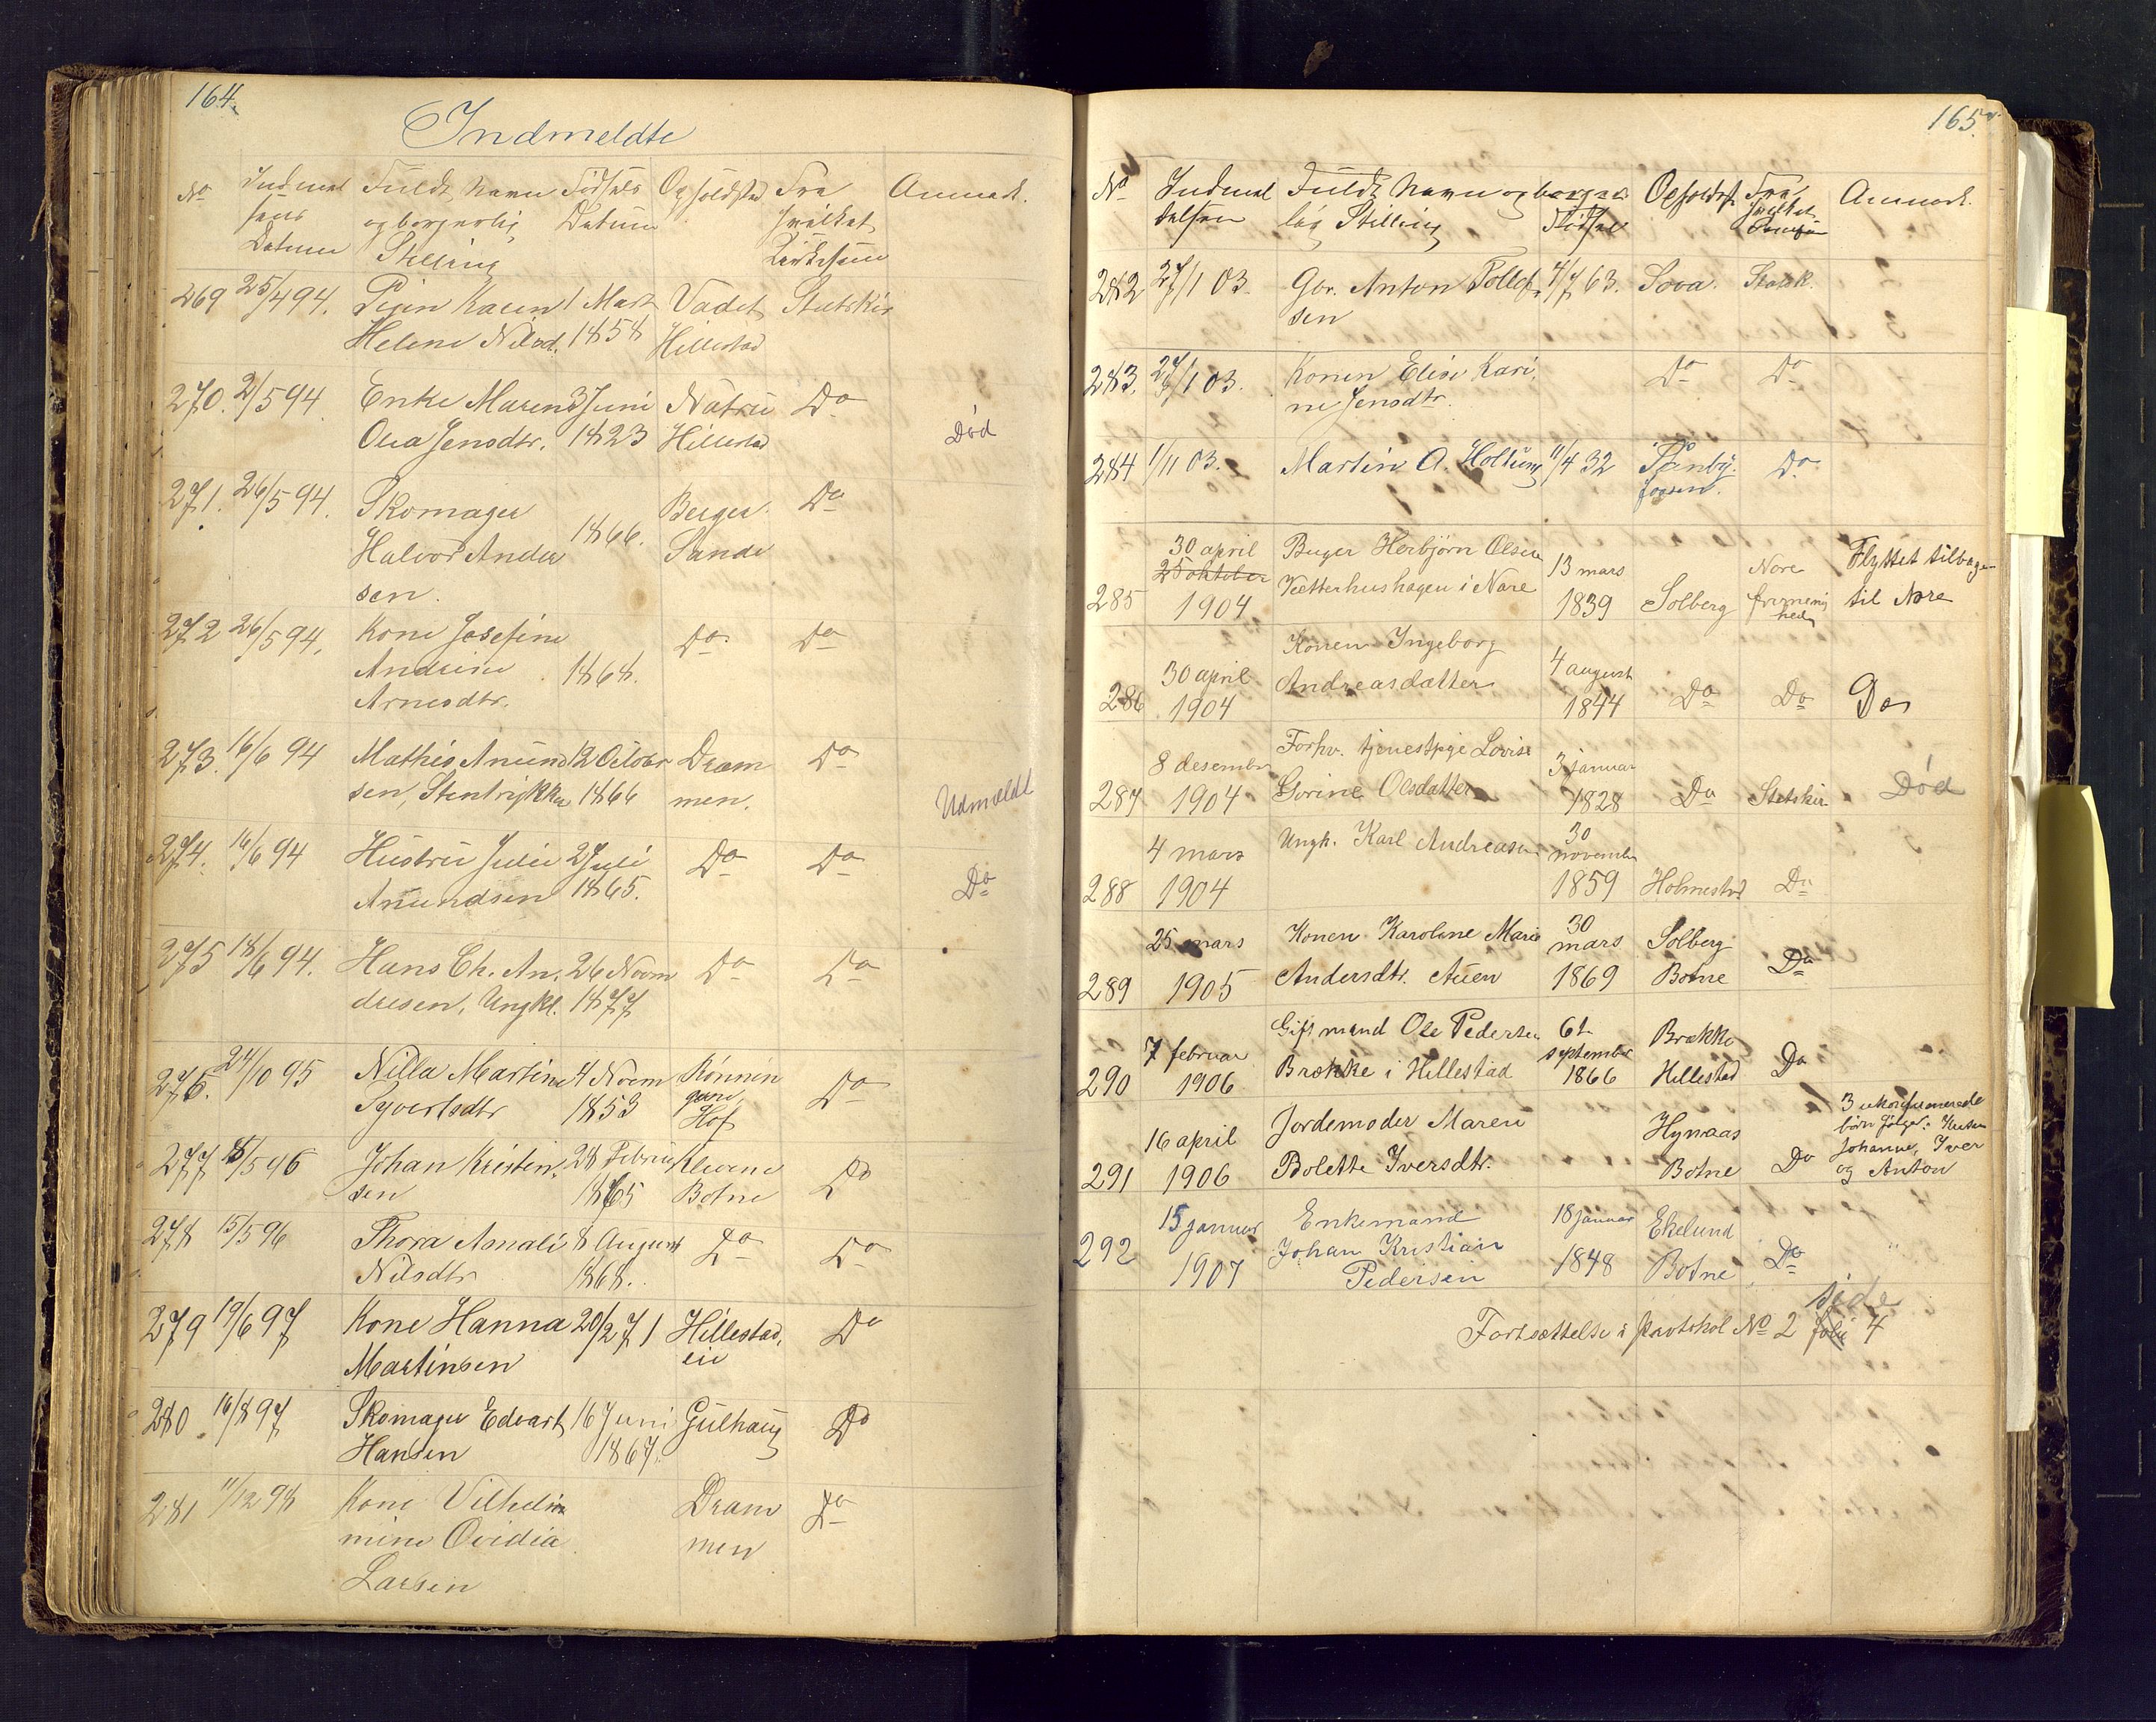 164.
Indmeldte
No Indmel Fuldt Navn Fødsels Opholdsted Fra Anmærk.
og borgerlig Datum hvilket
Datum Stilling
269 25/4 94. Pigen Karen 1 Mart Vadet Statskir
Helene Nilsd. 1858 Hillestad
270. 2/5 94. Enke Maren 3 Juni Do
Olia Jensdtr. 1823 Hillestad Død
271. 26/5 94. Skomager Berger Do
Halvor Ander 1866. Sande
sen.
272 26/5 94. Kone Josefine Do Do
Andrine 1868.
Arnesdtr.
273. 16/6 94 Mathis Anund 12 Octobr Dram Do
sen, Stentrykker 1866 men. Udmeldt
274. 16/6 94 Hustru Julie 2 Juli Do Do
Anundsen 1865. Do
275 18/6 94. Hans Ch. An. 26 Novm Do Do
dresen, Ungkl. 1877
276. 24/10 95 Nilla Martine 4 Novm Rønnin Do
Syvertsdtr 1853 gen Hof
277 8/5 96 Johan Kristen. 28 Februar Klevene Do
sen 1865 Botne
278 15/5 96 Thora Amali 8 August Do Do
Nilsdtr 1868.
279 19/6 97 Kone Hanna 20/2 71 Hillestad, Do
Martinsen eie
280 16/8 97 Skomager Edvart 16 Juni Gulhaug Do
Hansen 1867.
281 11/12 98 Kone Vilhelm Dram Do
mine Ovidia men
Larsen
165.
No Indmel Fuldt Navn og borger Opholdst Fra Anmærk.
delsen lig Stilling Fødsel hvilket
282 27/1 03. Gbr. Anton Tollef 4/7 63. Sova. Statsk.
sen
283. 27/1 03. Konen Elise Kari Do Do
ne Jensdtr.
284 1/11 03. Martin A. Holtung 11/4 32 Do
30 april Herbjørn Olsen 13 mars Nore Flyttet tilbage
25 oktober i Nore
285 1904 1839 Solberg til Nore
Konen Ingeborg
30 april Andreasdatter 4 august
286 1904 1844 Do Do Do
Forhv. tjenestpige Lovise
8 desember 3 januar
287 1904 Gorine Olsdatter 1828 Do Statskir Død
Ungk. Karl Andreasen 30
4 mars november
288 1904 1859 Holmestrd Do
25 mars Konen Karoline Marie 30 mars Solberg
289 1905 Andersdtr. Auen 1869 Botne Do
Gift mand Ole Pedersen 6te Brække
7 februar september
290 1906 Brække i Hillestad 1866 Hillestad Do
16 april Jordemoder Maren Hynaas 3 ukonfirmerede
børn følger:
291 1906 Bolette Iversdtr. Botne Do Johanne, Iver
og Anton
15 januar Enkemand 18 januar Ekelund
292 Johan Kristian
1907 Pedersen 1848 Botne Do "
side
Fortsættelse i protokol No 2 folie 4